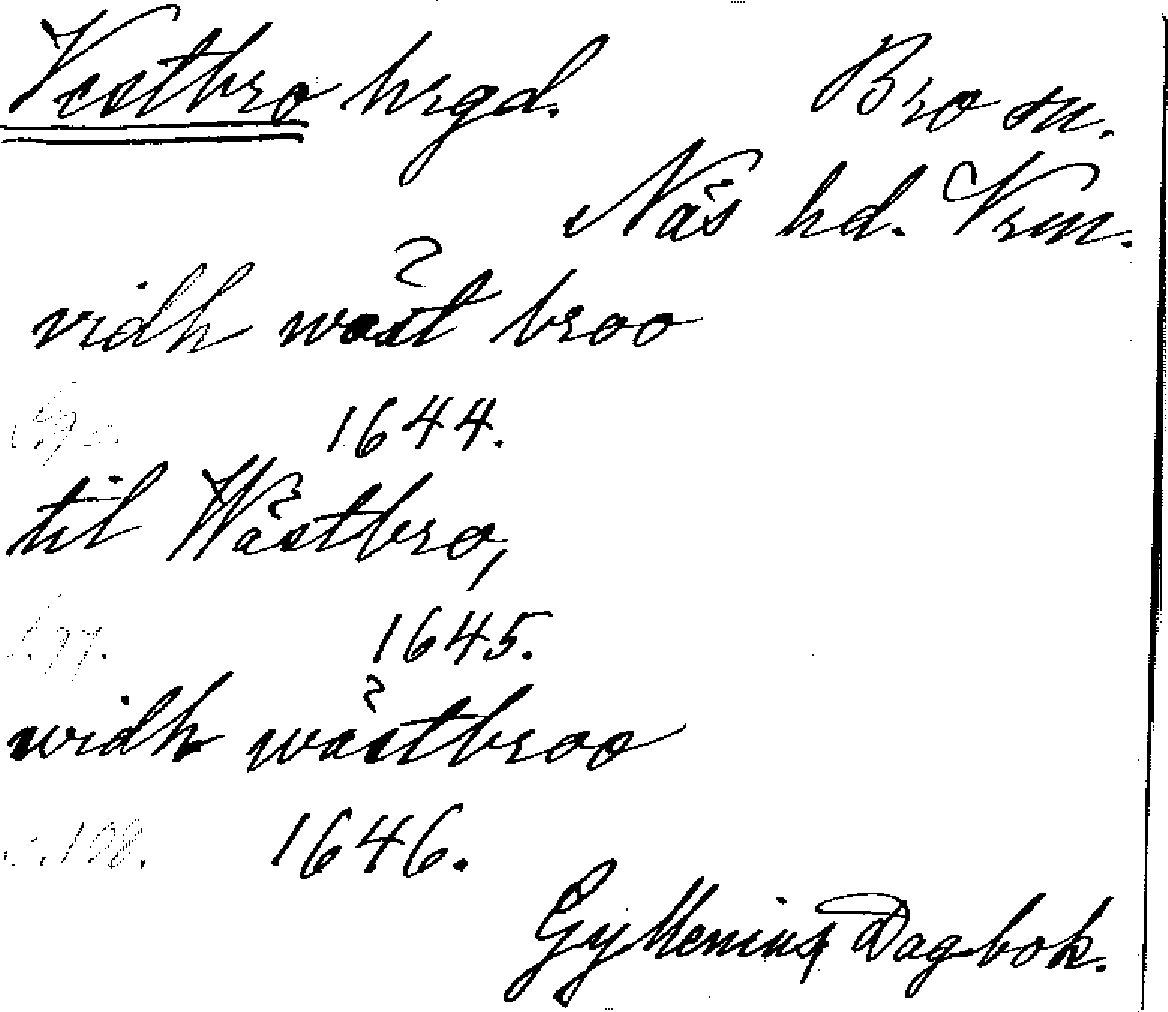 Vestbro hrgd. Bro sn.
Näs hd. Vrm.
vidh wäst broo
1644.
til Wästbro,
1645.
widh wästbroo
1646.
Gyllenius Dagbok.